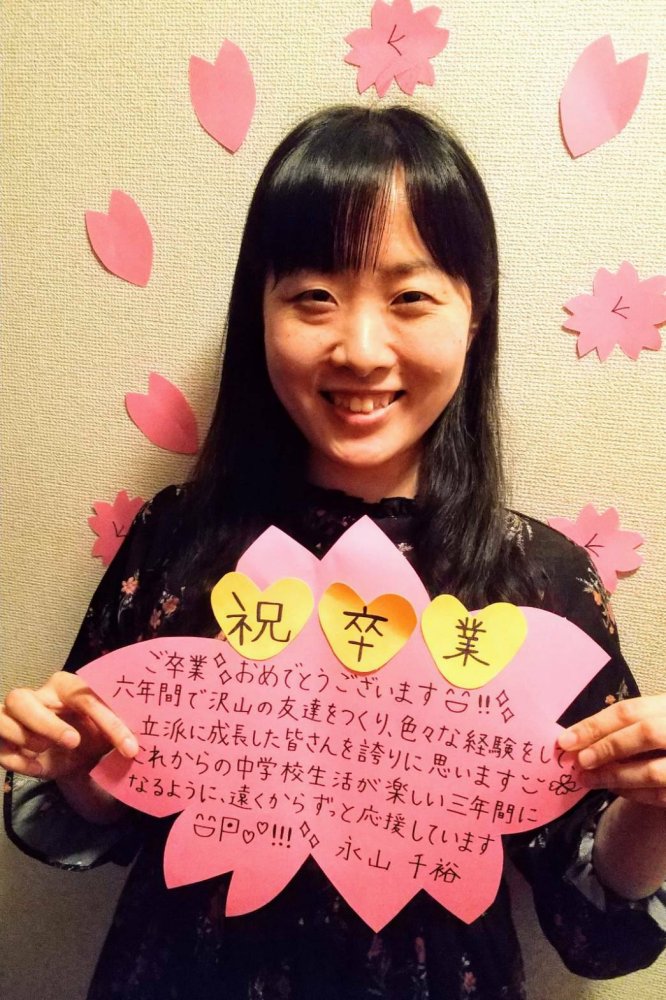 祝 卒 業
ご卒業おめでとうございます!!
六年間で沢山の友達をつくり、色々な経験をして、
立派に成長した皆さんを誇りに思います
これからの中学校生活が楽しい三年間に
なるように、遠くからずっと応援しています
!!! 永山 千裕